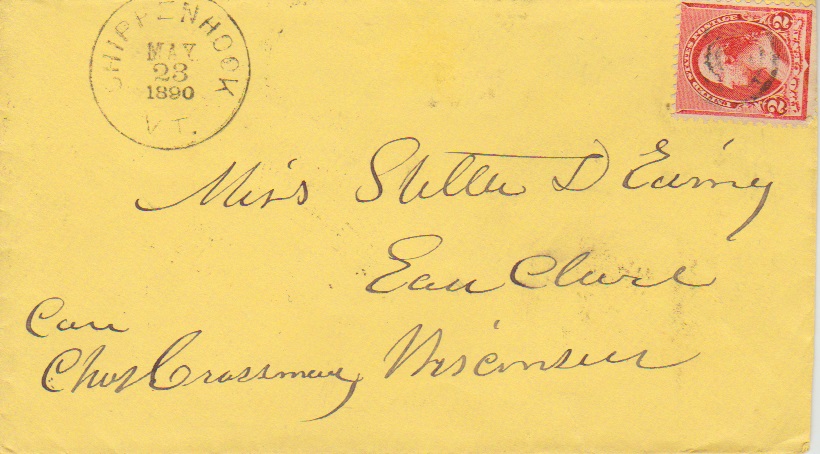 CHIPPENHOOK
MAY
23
1890
VT.
UNITED STATES POSTAGE
2 CENTS 2
Miss Stella D
Eau Claire
Care
Chas Crossman
Wisconsin